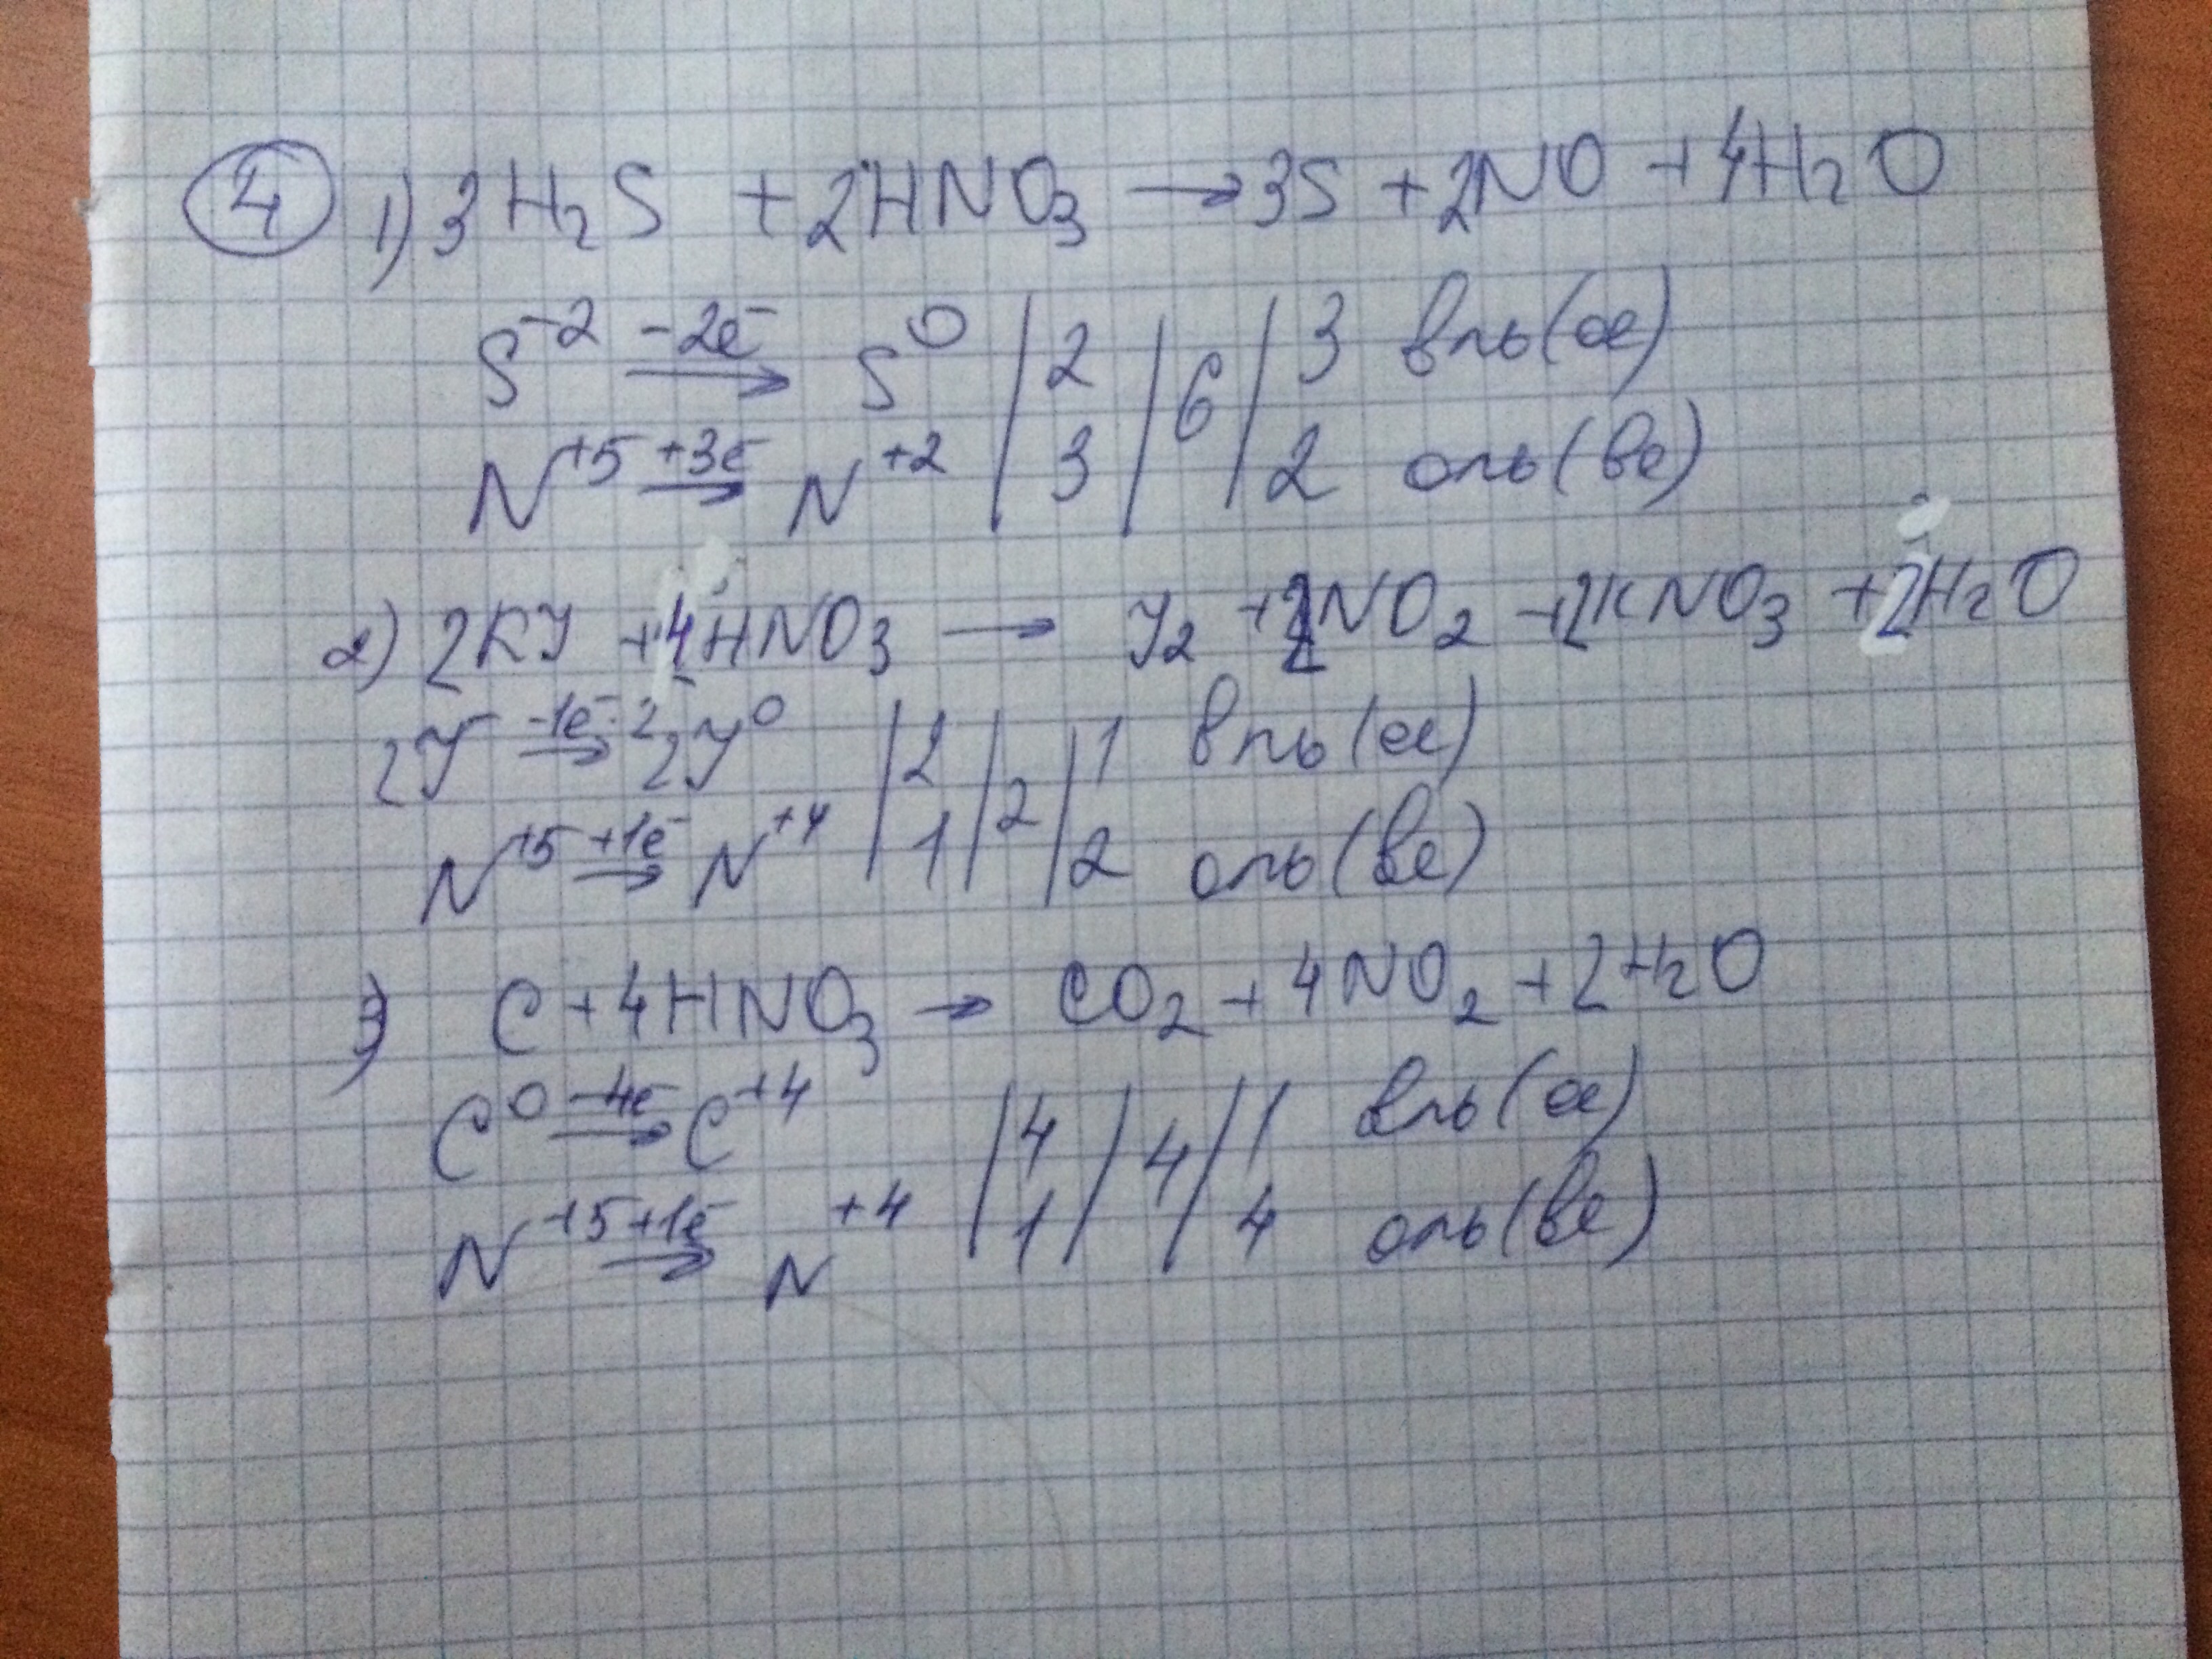 ④ 1) 3H₂S + 2HNO₃ → 3S + 2NO + 4H₂O
S⁻² −2e⁻ → S⁰ | 2 | 6 | 3 в-ль (ок)
N⁺⁵ +3e⁻ → N⁺² | 3 | | 2 о-ль (ве)
2) 2KJ + 4HNO₃ → J₂ + 2NO₂ + 2KNO₃ + 2H₂O
2J⁻ −1e⁻·2 → 2J⁰ | 2 | 2 | 1 в-ль (ок)
N⁺⁵ +1e⁻ → N⁺⁴ | 1 | | 2 о-ль (ве)
3) C + 4HNO₃ → CO₂ + 4NO₂ + 2H₂O
C⁰ −4e⁻ → C⁺⁴ | 4 | 4 | 1 в-ль (ок)
N⁺⁵ +1e⁻ → N⁺⁴ | 1 | | 4 о-ль (ве)